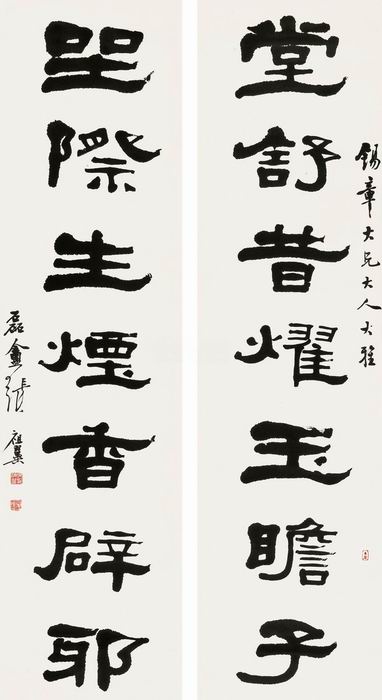 錫章大兄大人大雅
堂舒昔耀玉瞻子
坐際生煙香辟邪
磊盦張祖翼